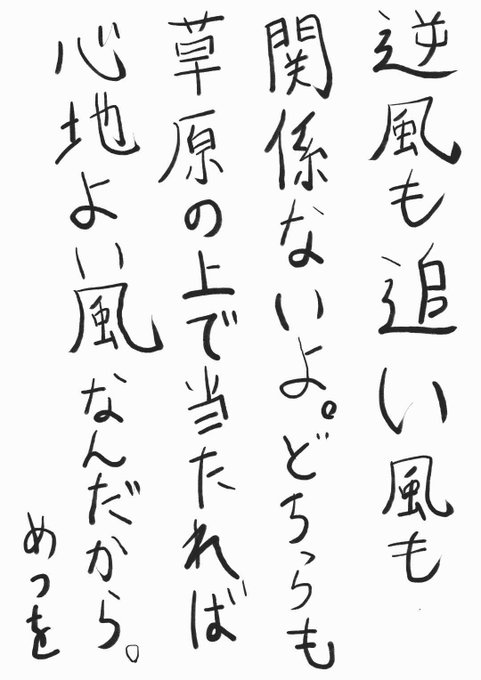 逆風も追い風も
関係ないよ。どちらも
草原の上で当たれば
心地よい風なんだから。
めっを